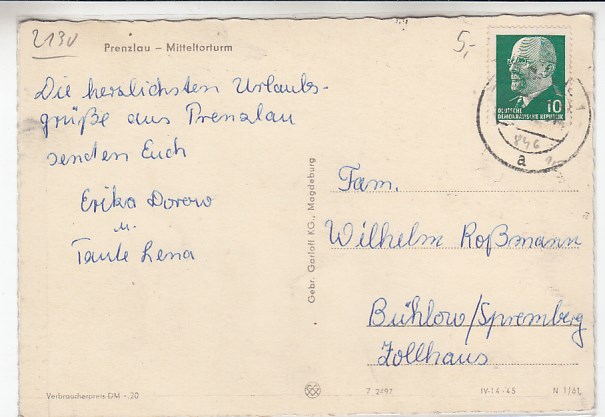 2130
Prenzlau – Mitteltorturm
5,-
Die herzlichsten Urlaubs-
grüße aus Prenzlau
senden Euch
Erika Dorow
u.
Tante Lena
10
DEUTSCHE
DEMOKRATISCHE REPUBLIK
a
Gebr. Garloff KG., Magdeburg
Fam.
Wilhelm Roßmann
Bühlow/Spremberg
Zollhaus
Verbraucherpreis DM -,20
IV-14-45
N 1/61